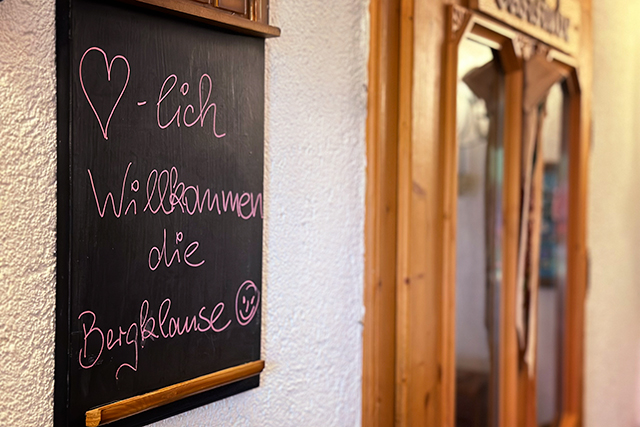 ♡-lich
Willkommen
die
Bergklause ☺